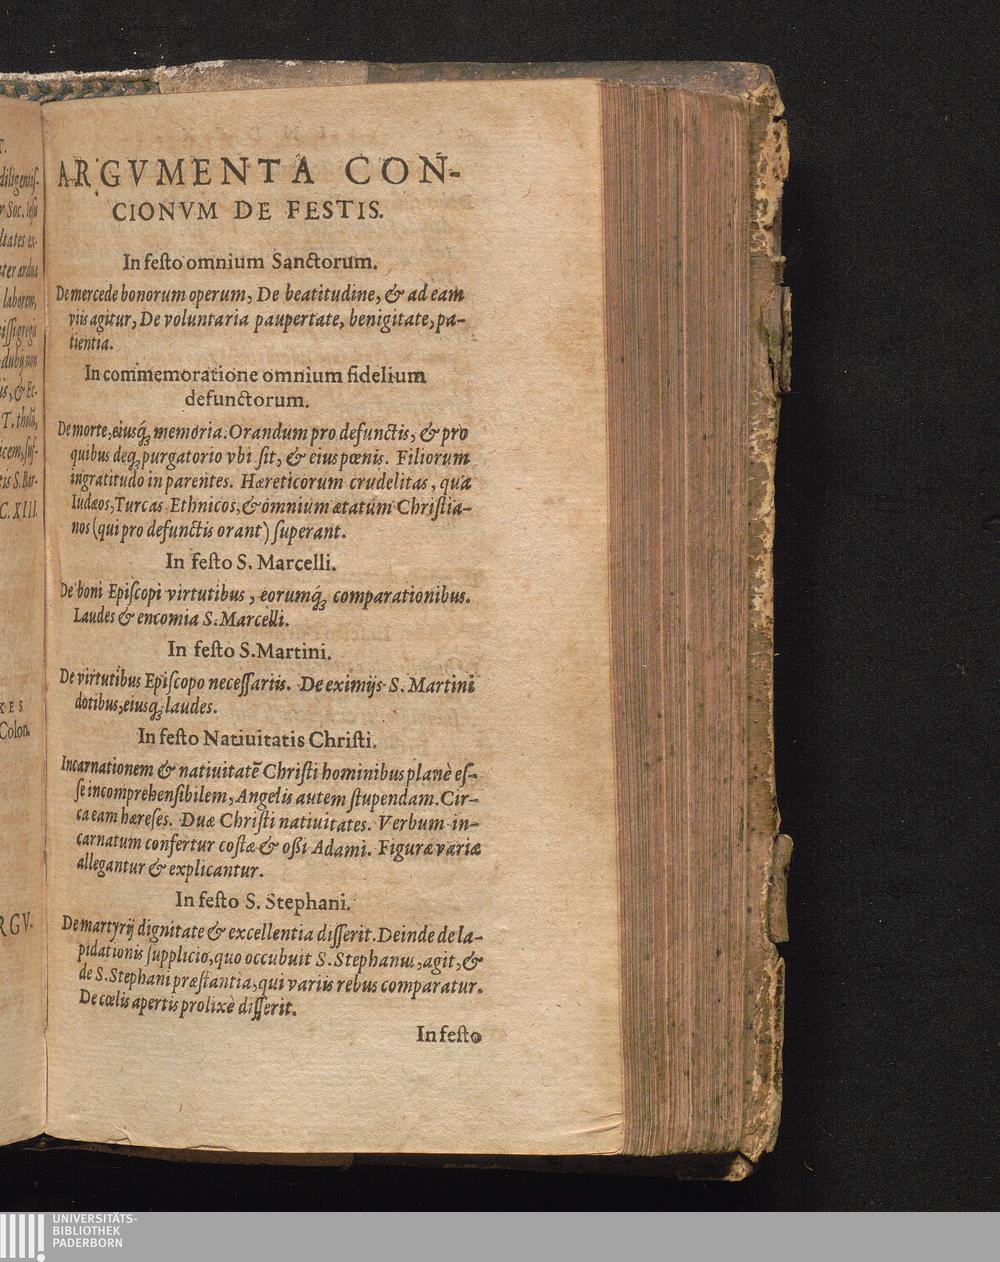 T.
diligentiſ-
r Soc. Ieſu
ltates ex-
nter ardua
laborem,
eiſſigregii
dubij non
is, & Ec-
T. tholū,
icem, ſuſ-
tis S. Bar-
C. XIII.
Colon.
RGV-
ARGVMENTA CON-
CIONVM DE FESTIS.
In feſto omnium Sanctorum.
De mercede bonorum operum, De beatitudine, & ad eam
viis agitur, De voluntaria paupertate, benigitate, pa-
tientia.
In commemoratione omnium fidelium
defunctorum.
De morte, eiusq́; memoria. Orandum pro defunctis, & pro
quibus deq; purgatorio vbi ſit, & eius pœnis. Filiorum
ingratitudo in parentes. Hæreticorum crudelitas, qua
Iudæos, Turcas Ethnicos, & omnium ætatum Chriſtia-
nos (qui pro defunctis orant) ſuperant.
In feſto S. Marcelli.
De boni Epiſcopi virtutibus, eorumq́; comparationibus.
Laudes & encomia S. Marcelli.
In feſto S. Martini.
De virtutibus Epiſcopo neceſſariis. De eximijs S. Martini
dotibus, eiusq; laudes.
In feſto Natiuitatis Chriſti.
Incarnationem & natiuitatē Chriſti hominibus planè eſ-
ſe incomprehenſibilem, Angelis autem ſtupendam. Cir-
ca eam hæreſes. Duæ Chriſti natiuitates. Verbum in-
carnatum confertur coſtæ & oßi Adami. Figuræ variæ
allegantur & explicantur.
In feſto S. Stephani.
De martyrij dignitate & excellentia diſſerit. Deinde de la-
pidationis ſupplicio, quo occubuit S. Stephanus, agit, &
de S. Stephani præſtantia, qui variis rebus comparatur.
De cœlis apertis prolixè diſſerit.
In feſto
UNIVERSITÄTS-
BIBLIOTHEK
PADERBORN